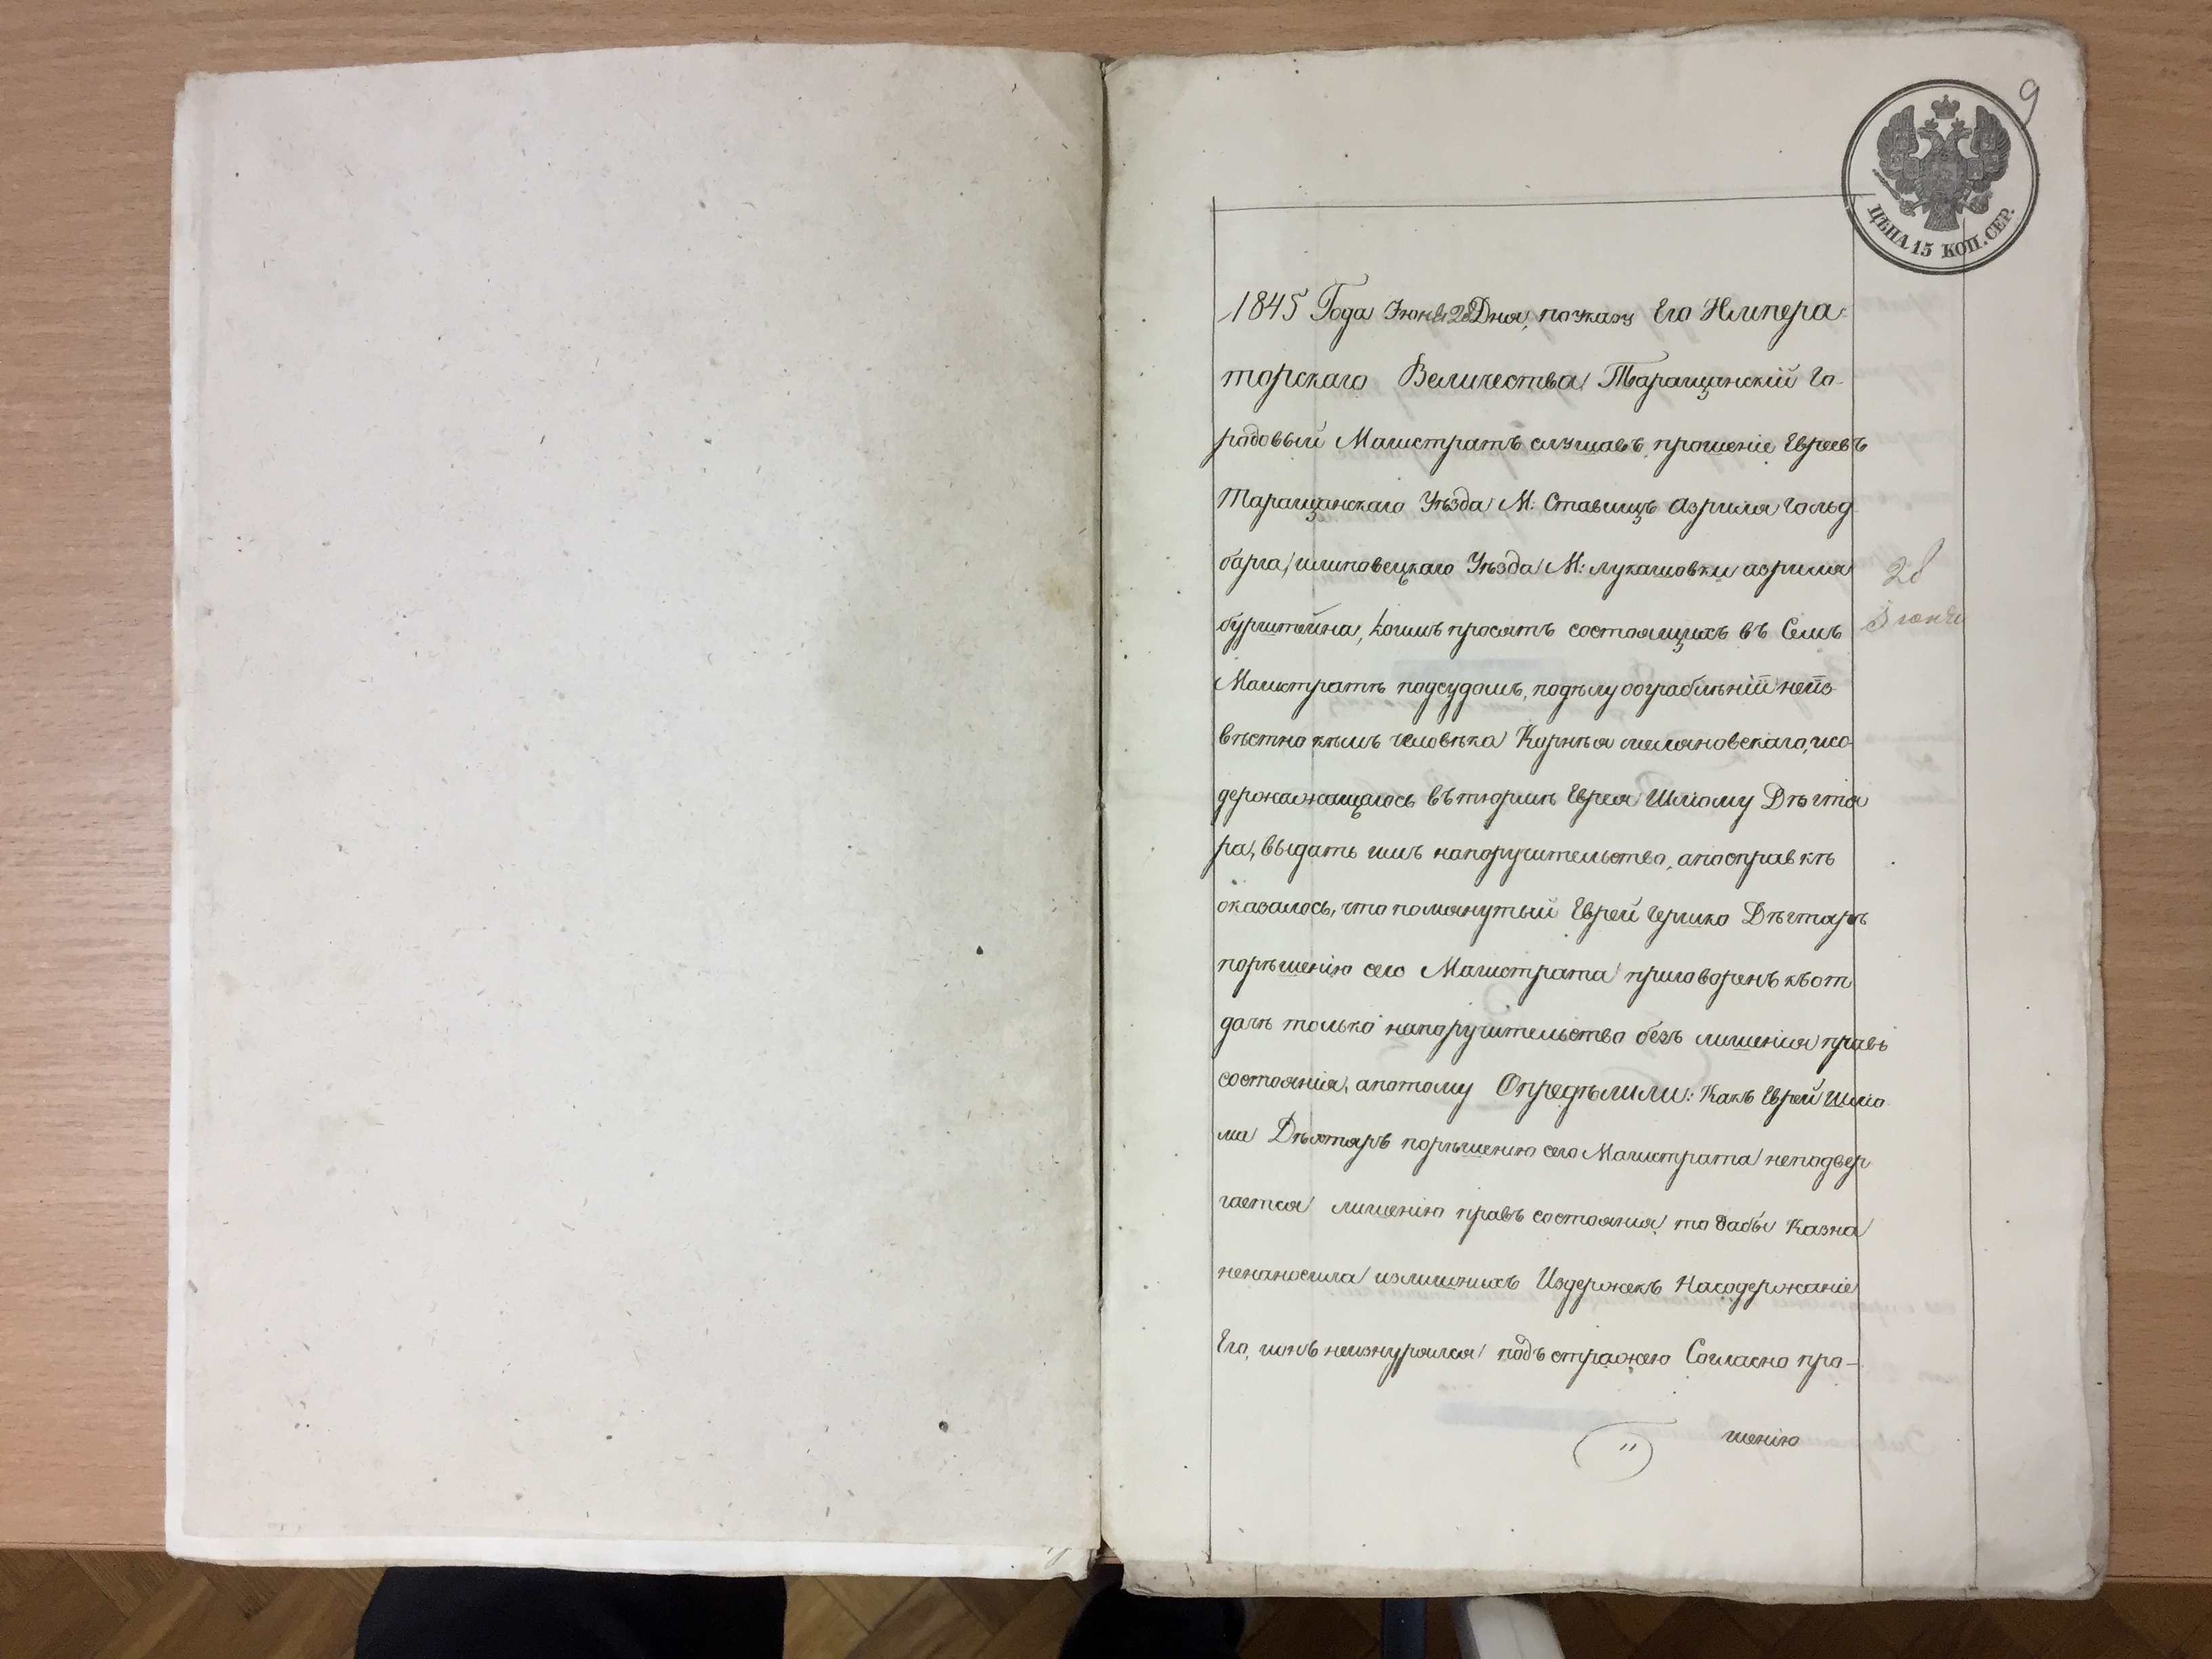 9
ЦѢНА 15 КОП. СЕР.
1845 Года Іюня 28 Дня, поуказу Его Импера-
торскаго Величества Таращанскій Го-
родовый Магистратъ слушавъ прошеніе Евреевъ
Таращанскаго Уѣзда М: Ставищъ Азриля Гольд
барга, илиповецкаго Уѣзда М: Лукашовки азриля
бурштейна, коимъ просятъ состоящихъ въ Семъ
28
Іюня
Магистратѣ подсудомъ, подѣлу обограбленіи неиз
вѣстно кѣмъ человѣка Корнѣя мелановскаго, исо
держажащагось втюрьмѣ Еврея Шлому Дѣгтя
ра, выдать имъ напоручительство, апосправкѣ
оказалось, что помянутый Еврей Гершко Дѣгтарь
порѣшенію сего Магистрата приговоренъ къот
дачѣ только напоручительство безъ лишенія правъ
состоянія, апотому Опредѣлили: Какъ Еврей Шлио
ма Дѣгтярь порѣшенію сего Магистрата неподвер
гается лишенію правъ состоянія, то дабы Казна
неаносила излишнихъ Издержекъ Насодержаніе
Его, ионъ неизнурялся подъ стражею Согласно про-
шенію